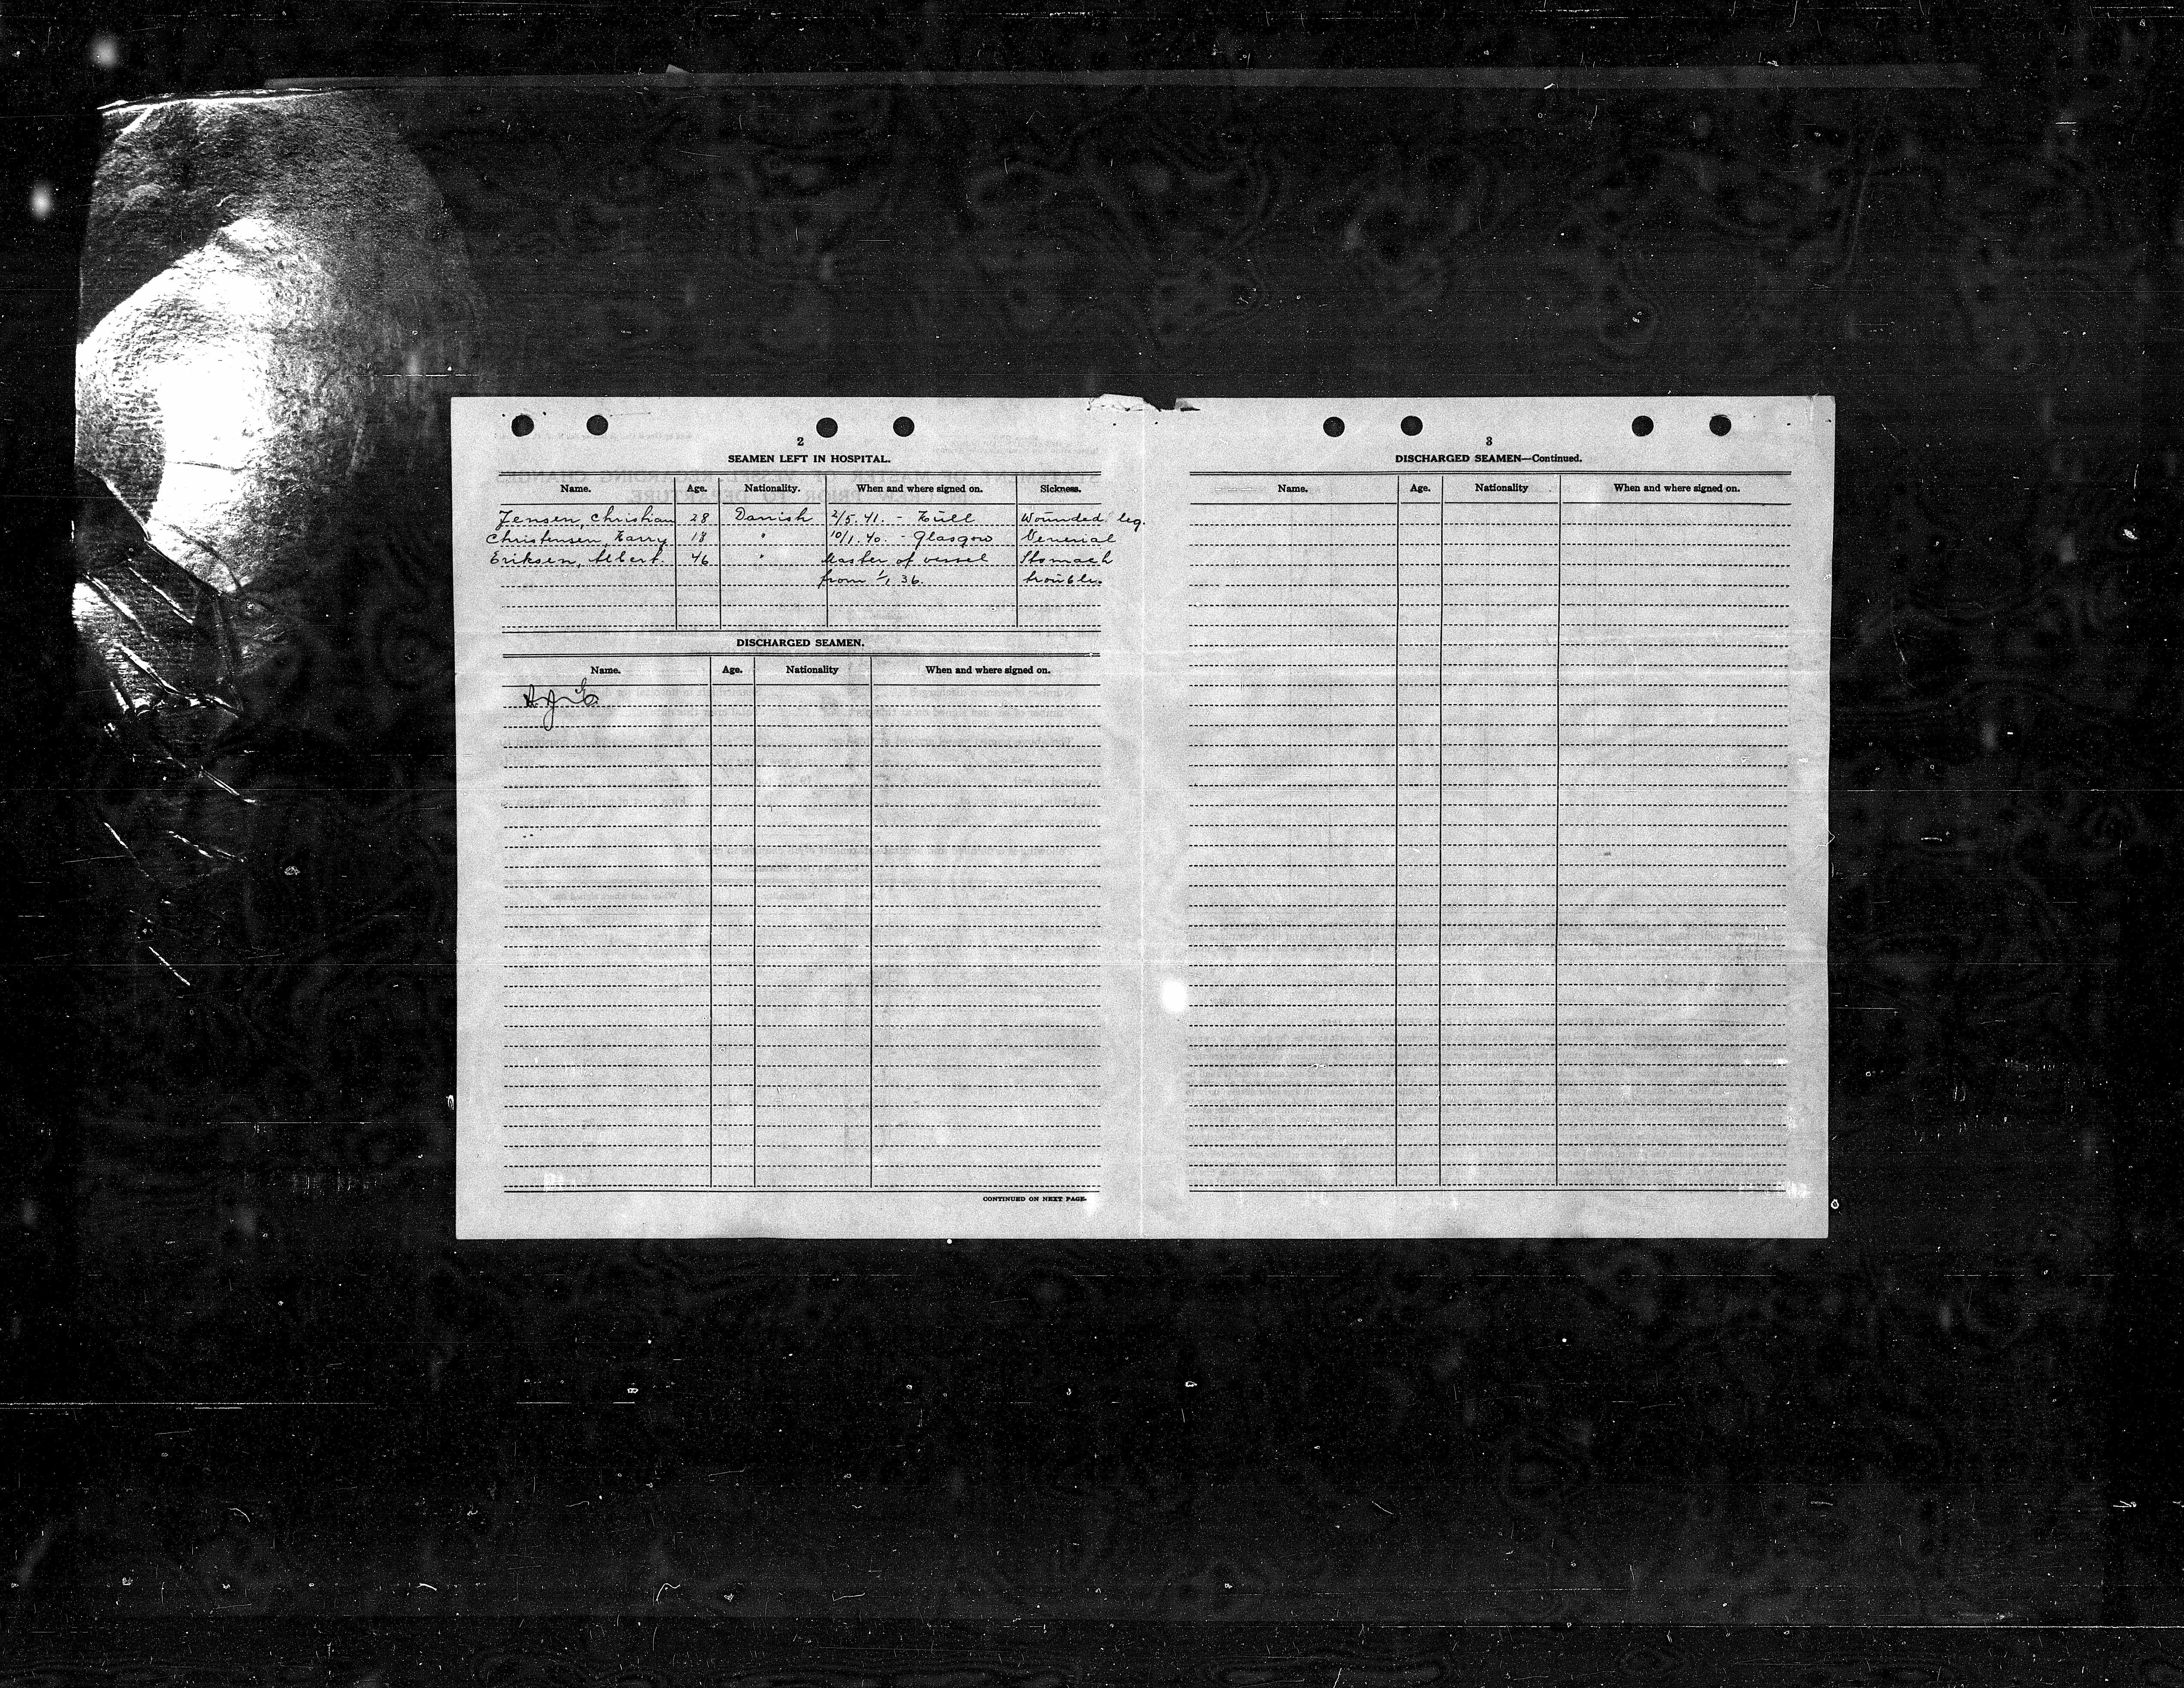 2
SEAMEN LEFT IN HOSPITAL.
Name. Age. Nationality. When and where signed on. Sickness.
Jensen, Christian 28 Danish 2/5. 41. - Hull Wounded leg.
Christensen, Harry 18 " 10/1. 40. - Glasgow Venerial
Eriksen, Albert. 46 " Master of vessel Stomach
from 1/1 36. trouble.
DISCHARGED SEAMEN.
Name. Age. Nationality When and where signed on.
CONTINUED ON NEXT PAGE.
3
DISCHARGED SEAMEN—Continued.
Name. Age. Nationality When and where signed on.